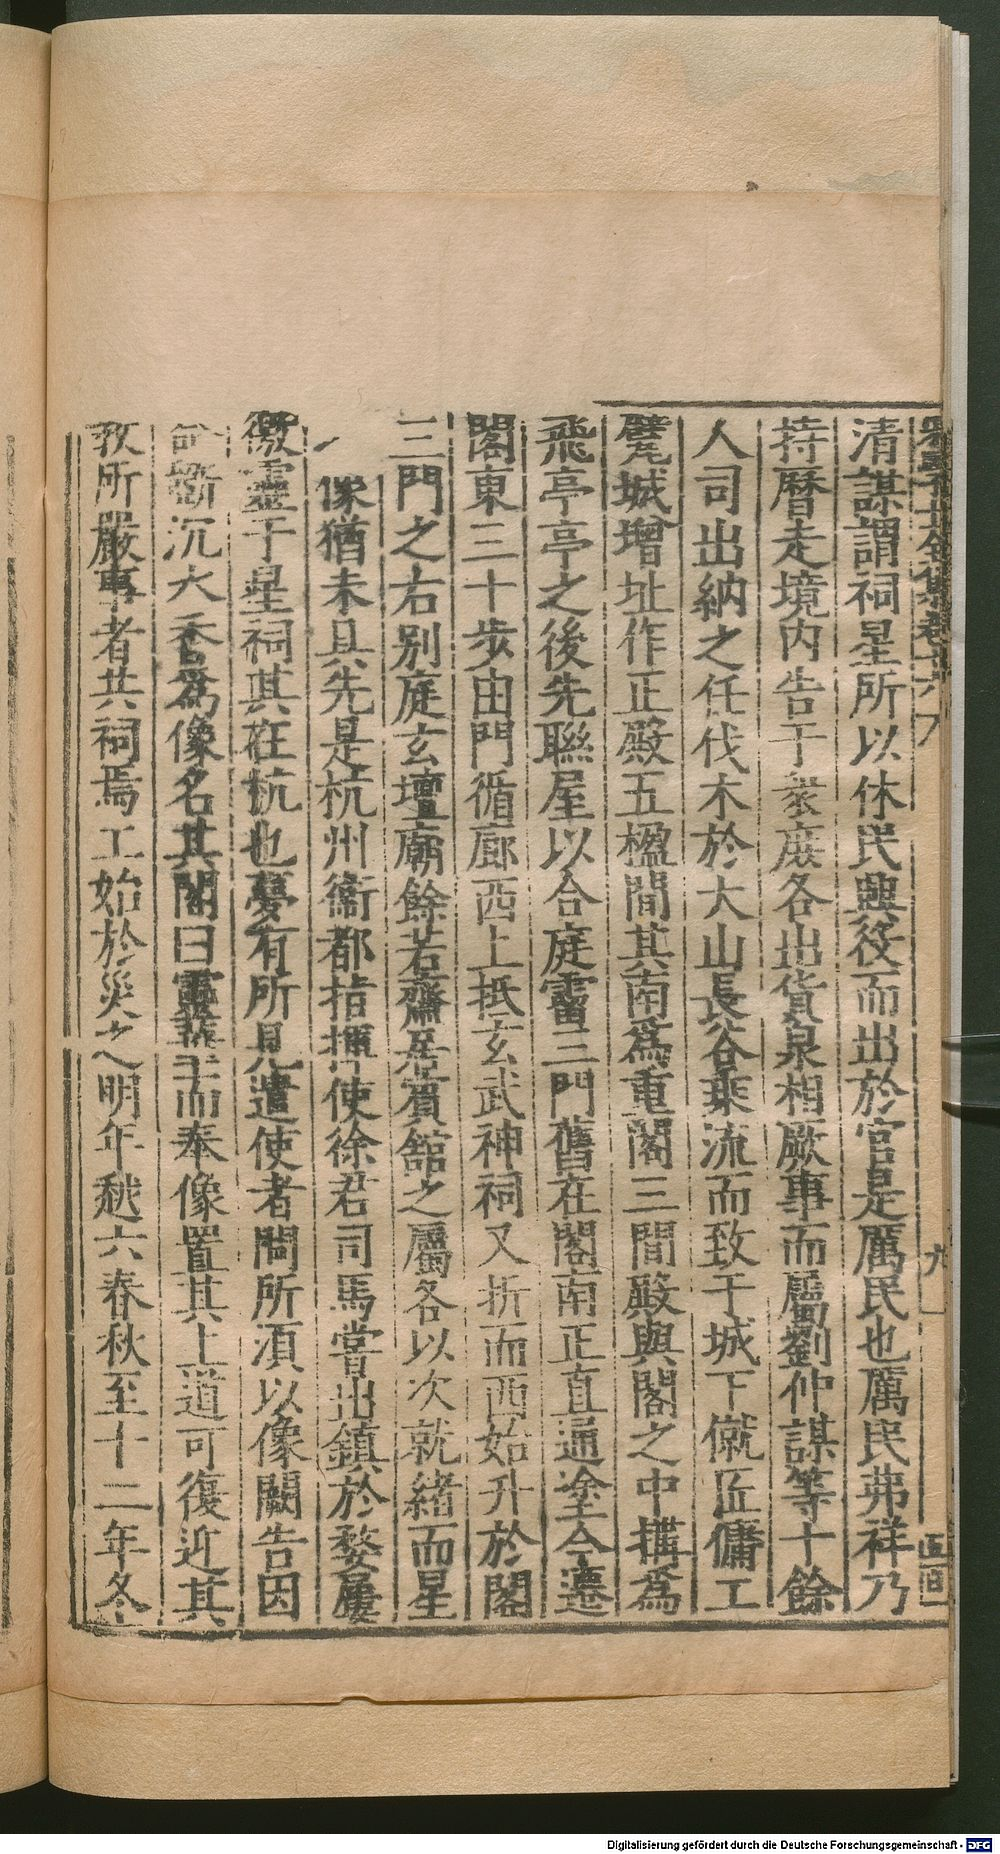 清謀謂祠星所以休民興役而出於官是厲民也厲民弗祥乃
持曆走境内告于衆庶各出貨泉相厥事而屬劉仲謀等十餘
人司出納之任伐木於大山長谷乗流而致于城下僦匠傭工
甓城增址作正殿五楹間其南爲重閣三間殿與閣之中構爲
飛亭亭之後先聯屋以合庭霤三門舊在閣南正直通塗今遷
閣東三十步由門循廊西上抵玄武神祠又折而西始升於閣
三門之右别庭玄壇廟餘若齋居賓館之屬各以次就緒而星
像猶未具先是杭州衞都指揮使徐君司馬嘗出鎮於婺屢
徼靈于星祠其在杭也夢有所見遣使者問所湏以像闕告因
斵沉水香爲像名其閣曰靈華而奉像置其上道可復近其
教所嚴事者共祠焉工始於災之明年越六春秋至十二年冬
九
Digitalisierung gefördert durch die Deutsche Forschungsgemeinschaft - DFG